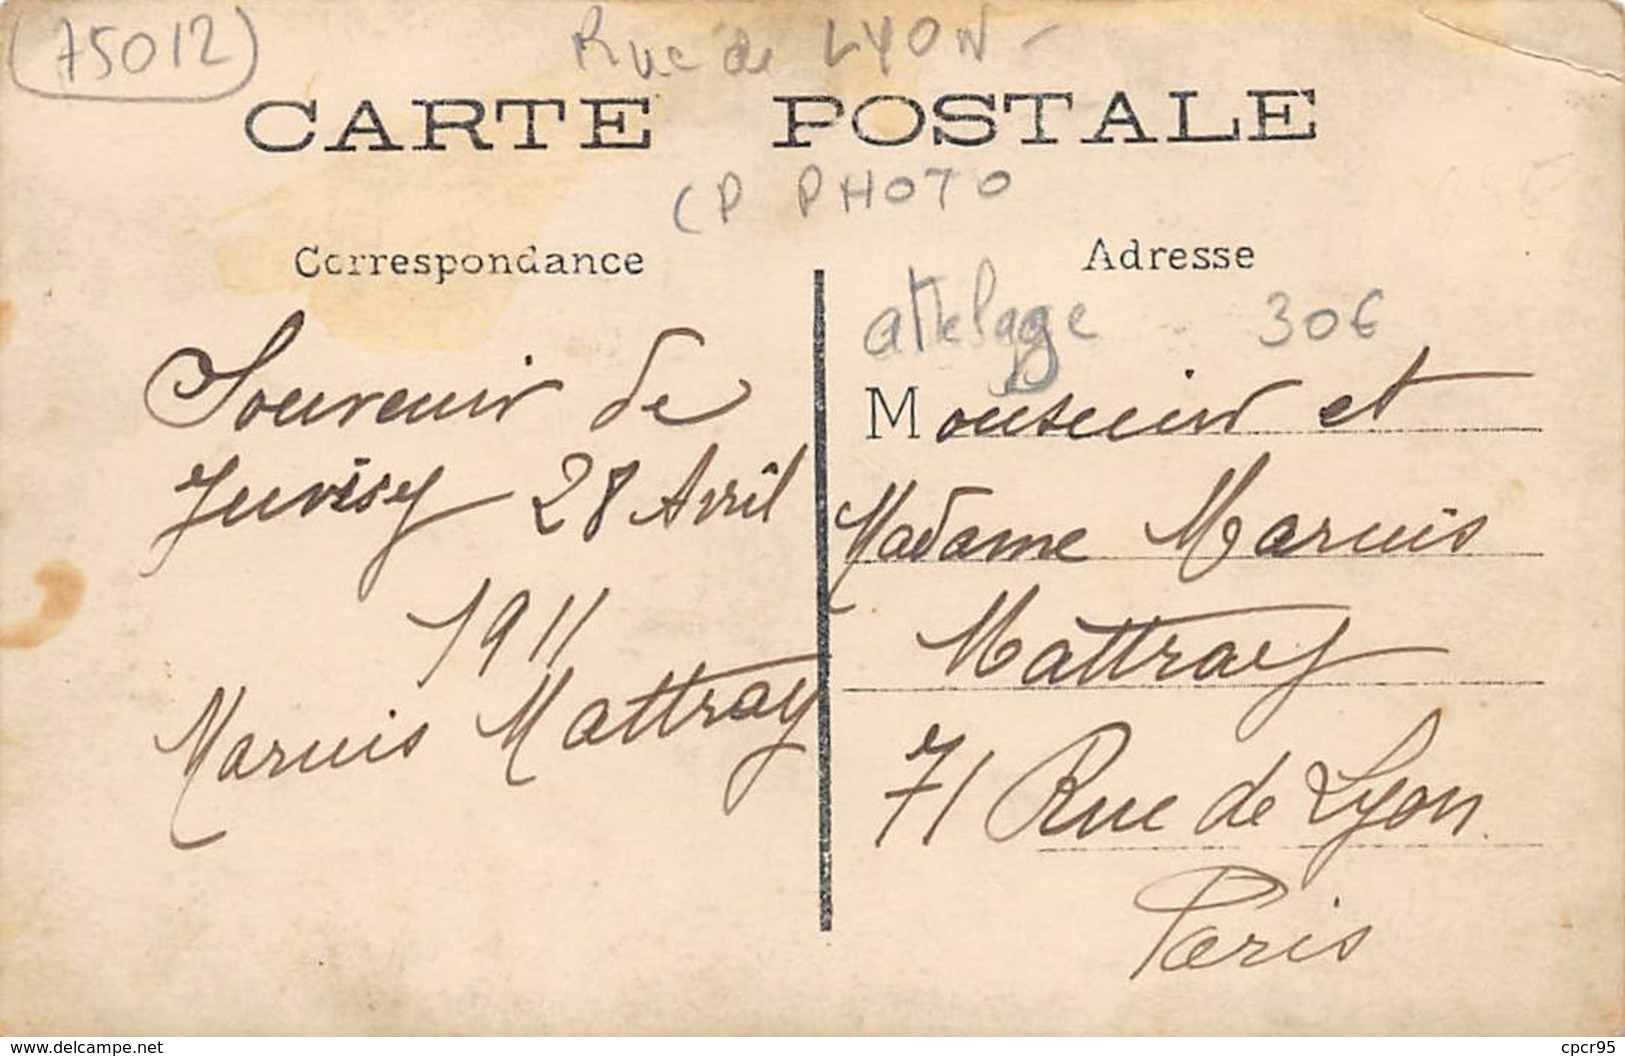 (75012)
Rue de LYON -
CARTE POSTALE
CP PHOTO
Correspondance
Adresse
attelage 30€
Souvenir de
Juvisy 28 Avril
1911
Marius Mattray
Monsieur et
Madame Marius
Mattray
71 Rue de Lyon
Paris
www.delcampe.net
cpcr95